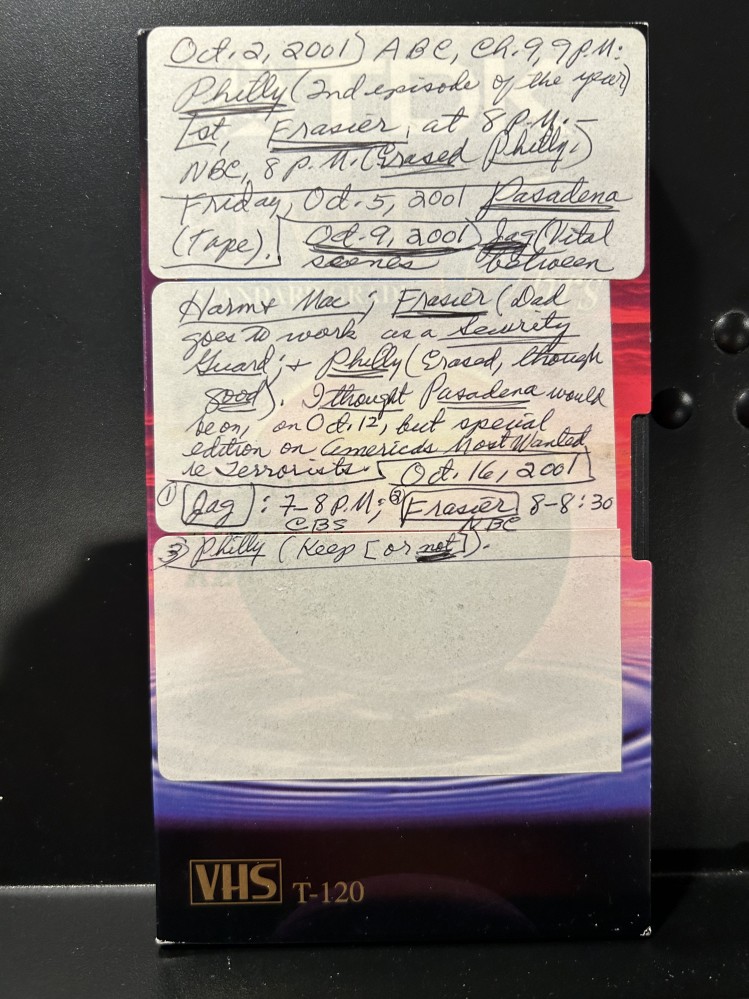 Oct. 2, 2001) ABC, Ch. 9, 9 P.M:
Philly (2nd episode of the year)
1st, Frasier, at 8 P.M. -
NBC, 8 P.M. (Erased Philly.)
Friday, Oct. 5, 2001 Pasadena
(Tape). Oct. 9, 2001) Jag (Vital
scenes between
Harm & Mac; Frasier (Dad
goes to work as a Security
Guard; + Philly (Erased, though
good). I thought Pasadena would
be on, on Oct. 12, but special
edition on Americas Most Wanted
re Terrorists. Oct. 16, 2001
① Jag : 7-8 P.M; ② Frasier 8-8:30
CBS NBC
3) Philly (Keep [or not]).
VHS T-120